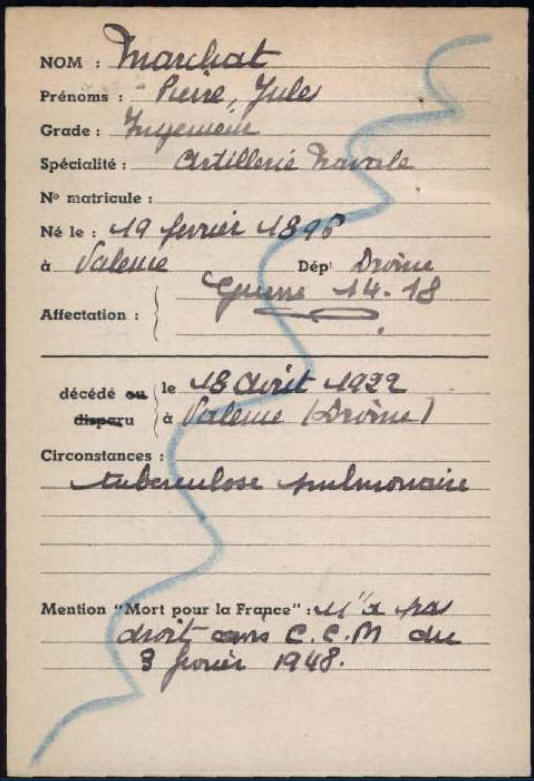 NOM : Marchat
Prénoms : Pierre, Jules
Grade : Ingénieur
Spécialité : Artillerie Navale
N° matricule :
Né le : 19 février 1896
à Valence Dépt Drôme
Guerre 14-18
Affectation :
décédé ou le 18 Août 1922
disparu à Valence (Drôme)
Circonstances :
tuberculose pulmonaire
Mention "Mort pour la France" : n'a pas
droit avis C.C.M du
3 février 1948.